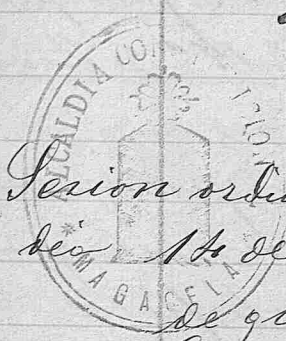 ALCALDIA CO
* MAGACELA
Sesion ordi
dia 14 de
de